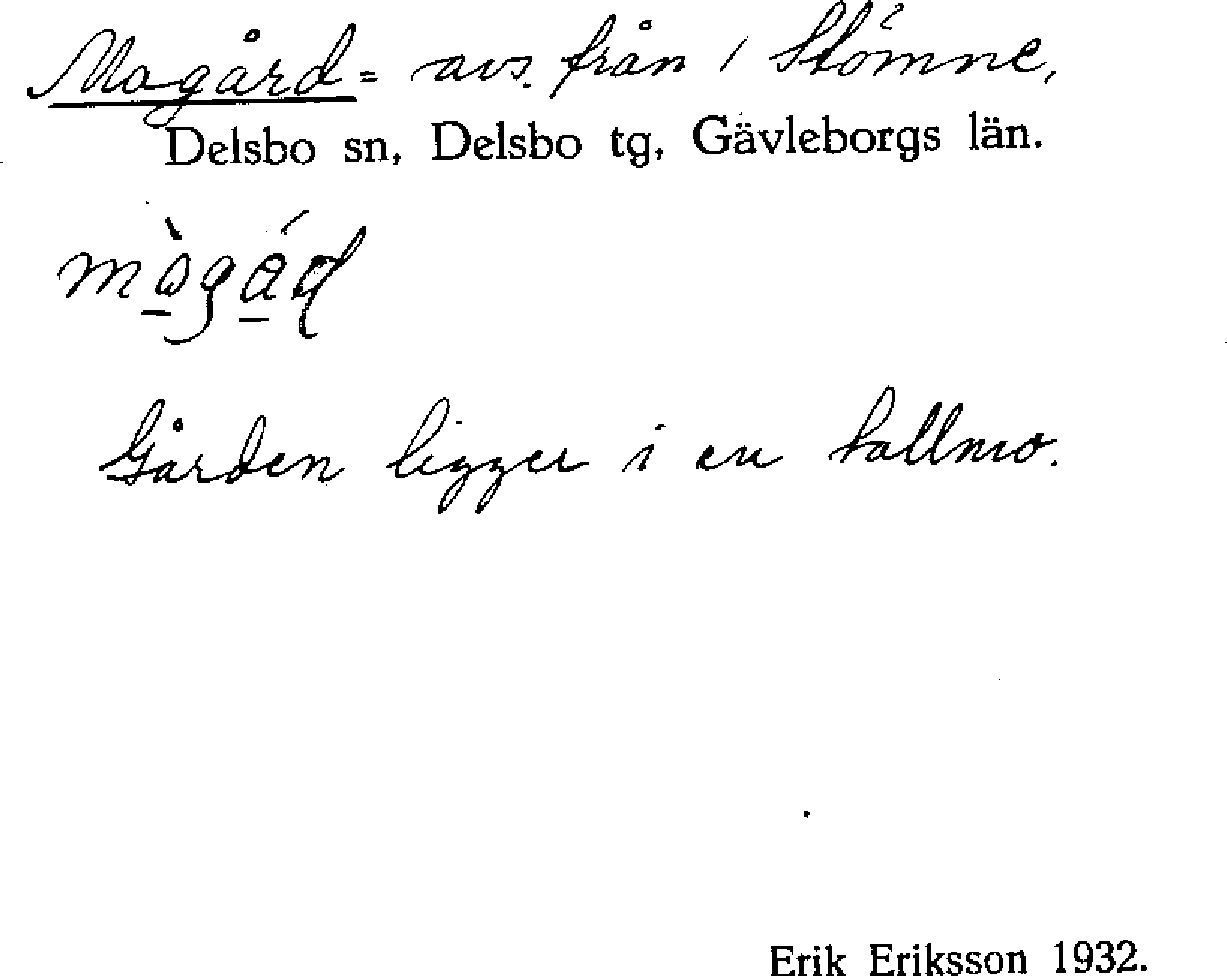 Mogård = avs. från 1 Stömne,
Delsbo sn, Delsbo tg, Gävleborgs län.
Gården ligger i en tallmo.
Erik Eriksson 1932.